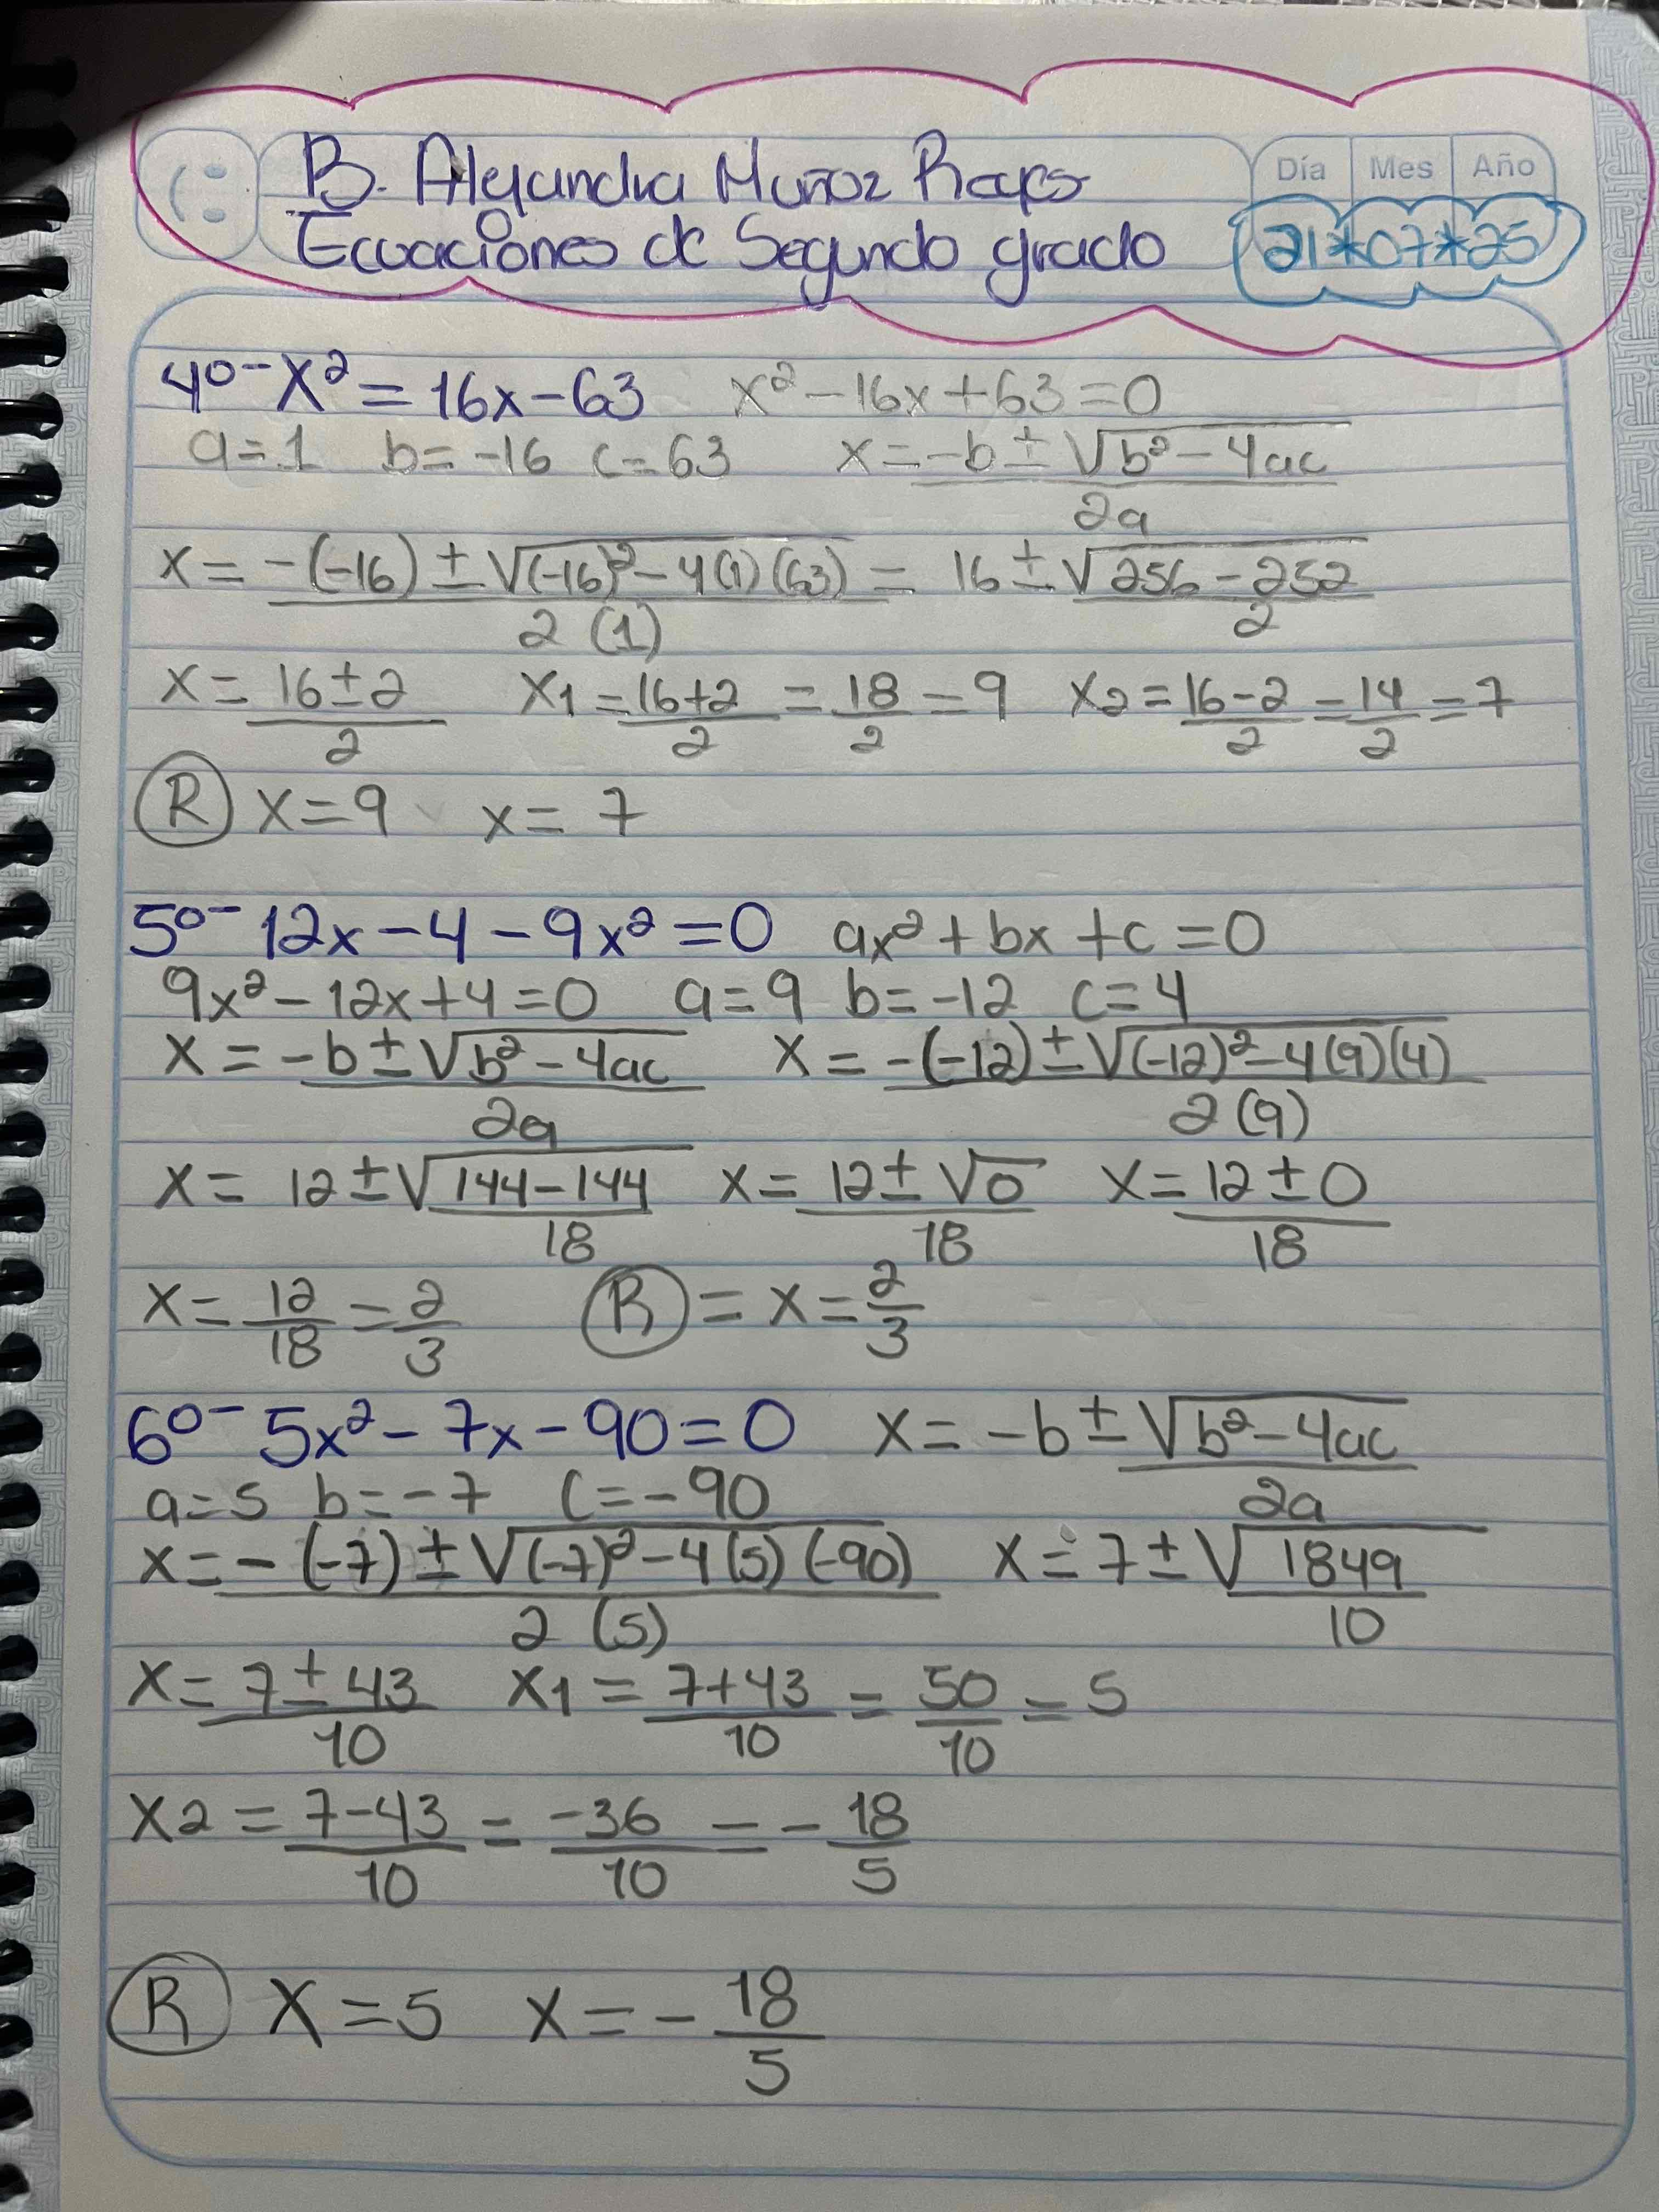 B. Alejandra Muñoz Reyes
Día Mes Año
Ecuaciones de Segundo grado 21*07*25
4º- x² = 16x - 63 x² - 16x + 63 = 0
a = 1 b = -16 c = 63 x = -b ± √b² - 4ac / 2a
x = -(-16) ± √(-16)² - 4(1)(63) / 2(1) = 16 ± √256 - 252 / 2
x = 16 ± 2 / 2 x1 = 16+2 / 2 = 18/2 = 9 x2 = 16-2 / 2 = 14/2 = 7
R x = 9 x = 7
5º- 12x - 4 - 9x² = 0 ax² + bx + c = 0
9x² - 12x + 4 = 0 a = 9 b = -12 c = 4
x = -b ± √b² - 4ac / 2a x = -(-12) ± √(-12)² - 4(9)(4) / 2(9)
x = 12 ± √144 - 144 / 18 x = 12 ± √0 / 18 x = 12 ± 0 / 18
x = 12/18 = 2/3 R = x = 2/3
6º- 5x² - 7x - 90 = 0 x = -b ± √b² - 4ac / 2a
a = 5 b = -7 c = -90
x = -(-7) ± √(-7)² - 4(5)(-90) / 2(5) x = 7 ± √1849 / 10
x = 7 ± 43 / 10 x1 = 7+43 / 10 = 50/10 = 5
x2 = 7-43 / 10 = -36/10 = -18/5
R x = 5 x = -18/5